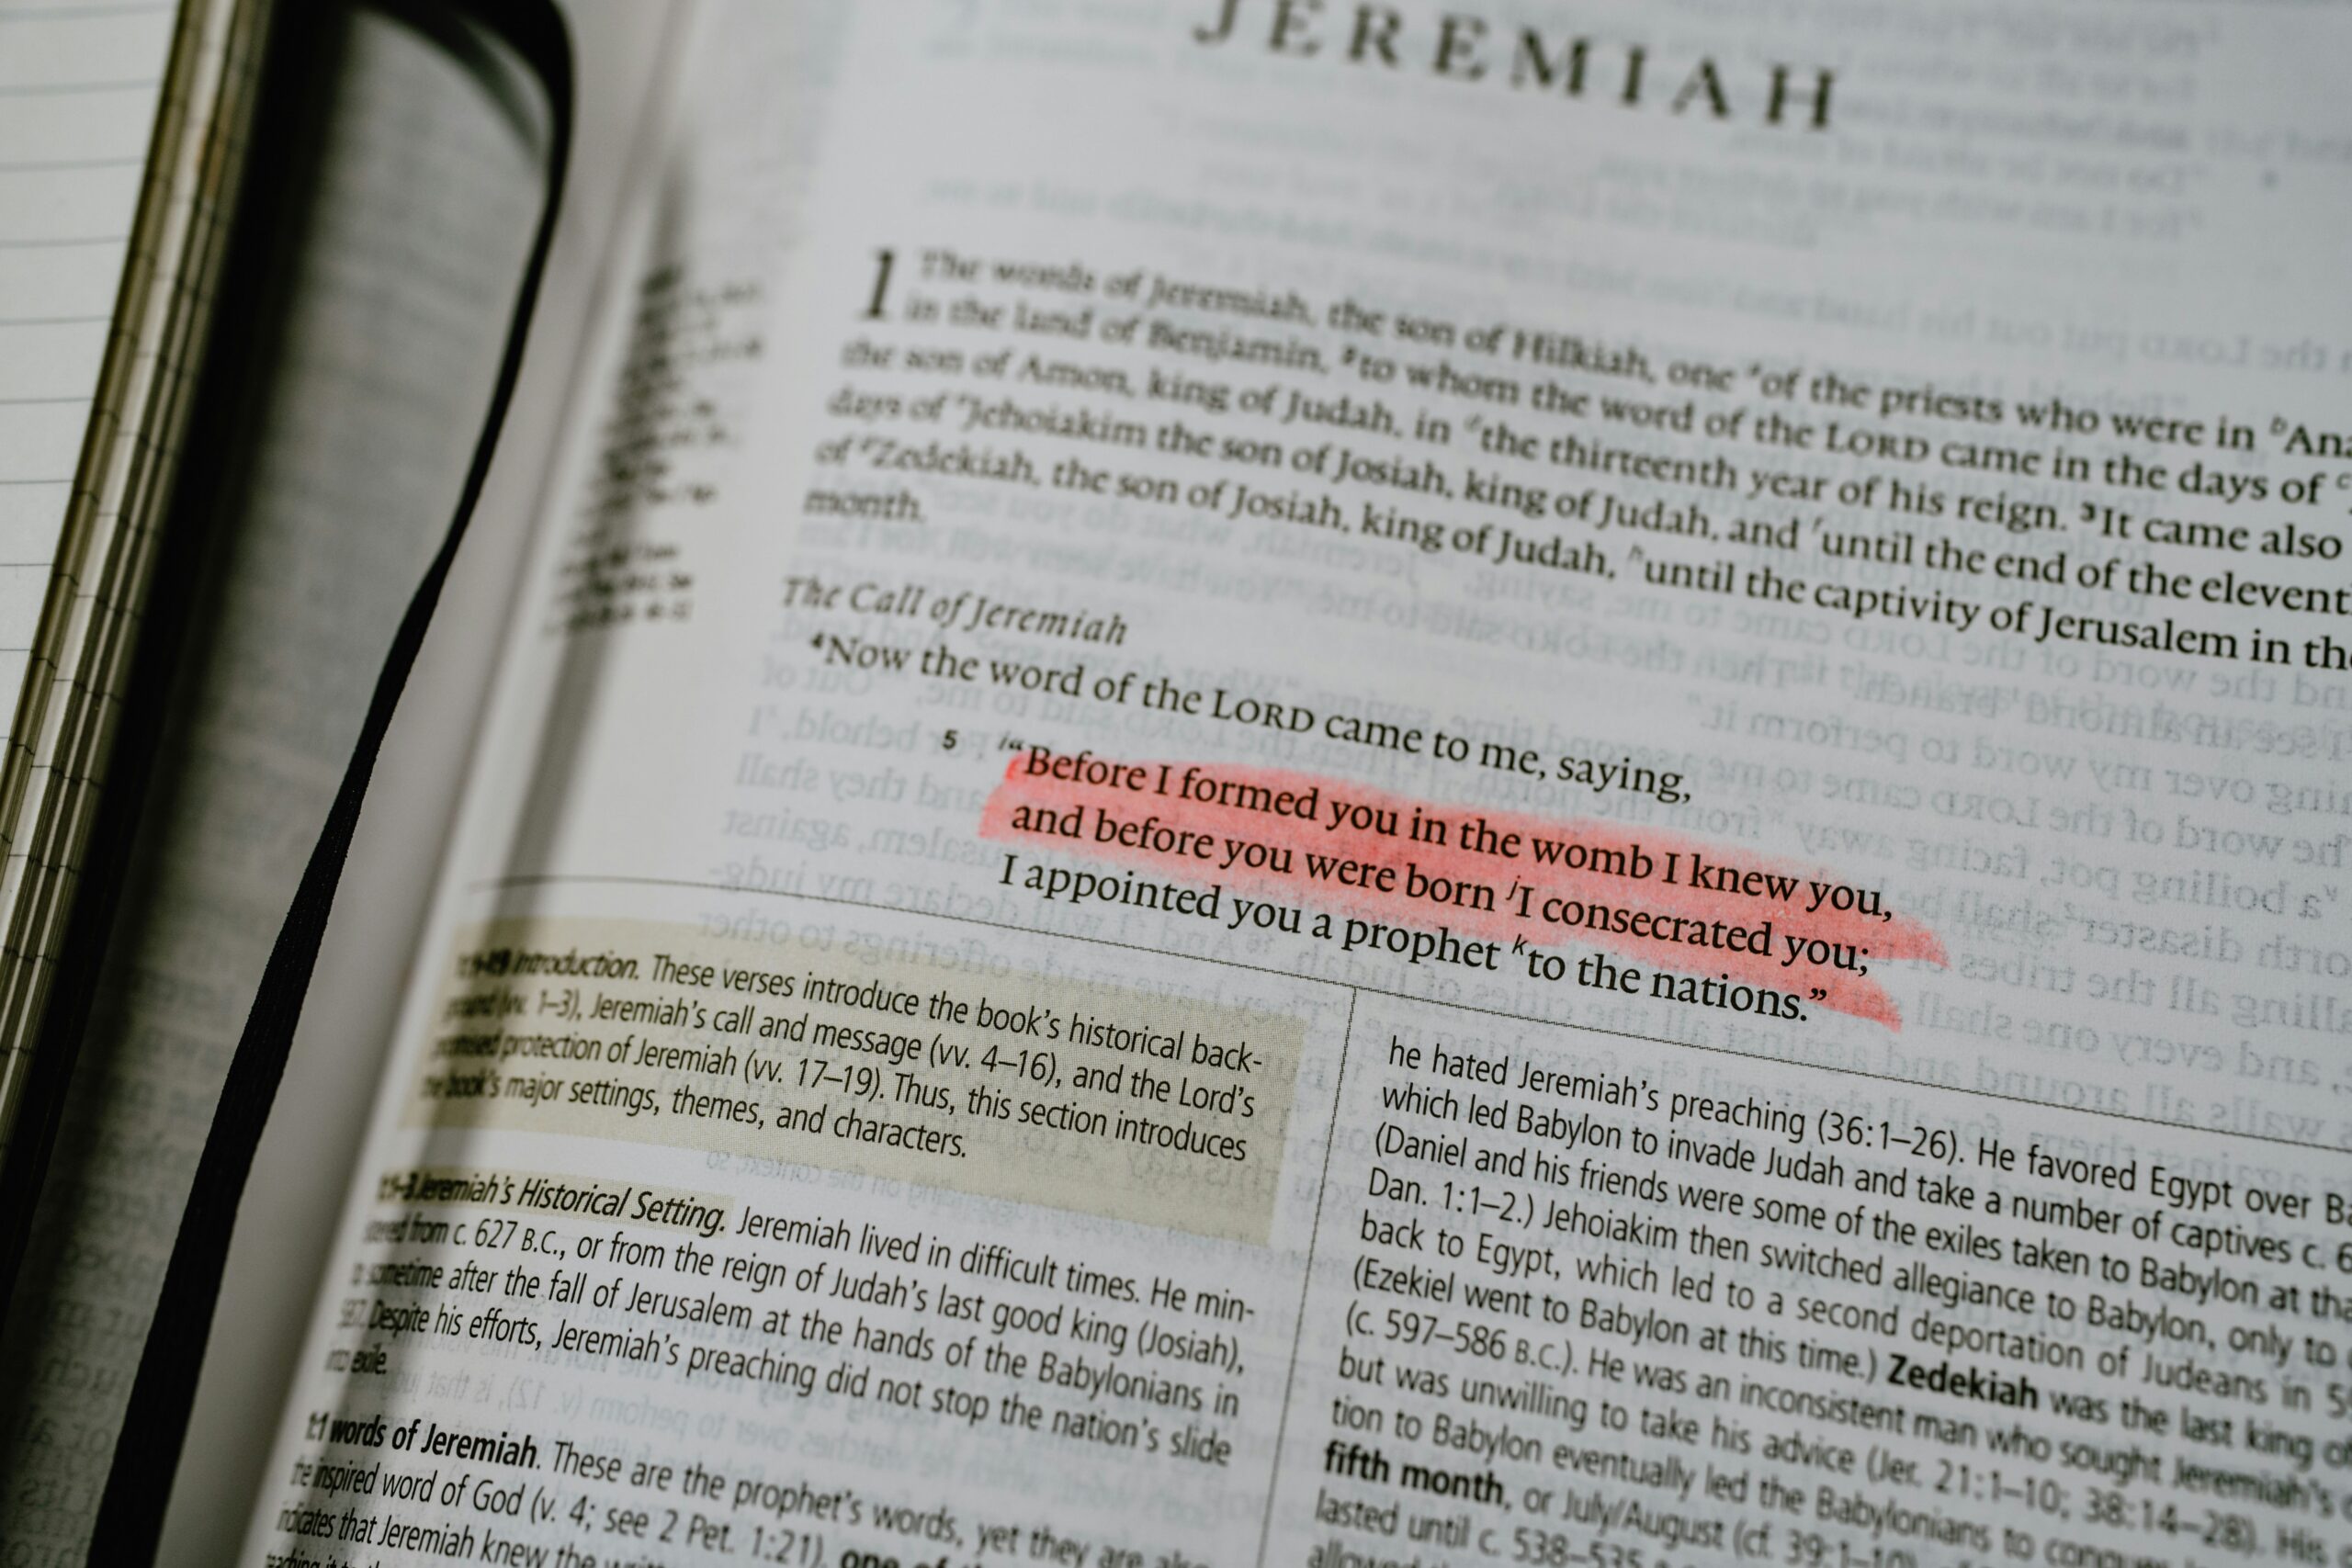 JEREMIAH
1 The words of Jeremiah, the son of Hilkiah, one a of the priests who were in b Ana
in the land of Benjamin, 2 to whom the word of the LORD came in the days of c
the son of Amon, king of Judah, in d the thirteenth year of his reign. 3 It came also
days of e Jehoiakim the son of Josiah, king of Judah, and f until the end of the elevent
of g Zedekiah, the son of Josiah, king of Judah, h until the captivity of Jerusalem in the
month.
The Call of Jeremiah
4 Now the word of the LORD came to me, saying,
5 i “Before I formed you in the womb I knew you,
and before you were born j I consecrated you;
I appointed you a prophet k to the nations.”
Introduction. These verses introduce the book’s historical back-
(vv. 1–3), Jeremiah’s call and message (vv. 4–16), and the Lord’s
protection of Jeremiah (vv. 17–19). Thus, this section introduces
the book’s major settings, themes, and characters.
1:1–3 Jeremiah’s Historical Setting. Jeremiah lived in difficult times. He min-
from c. 627 B.C., or from the reign of Judah’s last good king (Josiah),
to sometime after the fall of Jerusalem at the hands of the Babylonians in
Despite his efforts, Jeremiah’s preaching did not stop the nation’s slide
into exile.
1:1 words of Jeremiah. These are the prophet’s words, yet they are
the inspired word of God (v. 4; see 2 Pet. 1:21). one of
that Jeremiah knew the
he hated Jeremiah’s preaching (36:1–26). He favored Egypt over Ba
which led Babylon to invade Judah and take a number of captives c. 6
(Daniel and his friends were some of the exiles taken to Babylon at th
Dan. 1:1–2.) Jehoiakim then switched allegiance to Babylon, only to
back to Egypt, which led to a second deportation of Judeans in 5
(Ezekiel went to Babylon at this time.) Zedekiah was the last king o
(c. 597–586 B.C.). He was an inconsistent man who sought Jeremiah’s
but was unwilling to take his advice (Jer. 21:1–10; 38:14–28). His
tion to Babylon eventually led the Babylonians to conqu
fifth month, or July/August (cf. 39:1–10)
lasted until c. 538–535
allowed